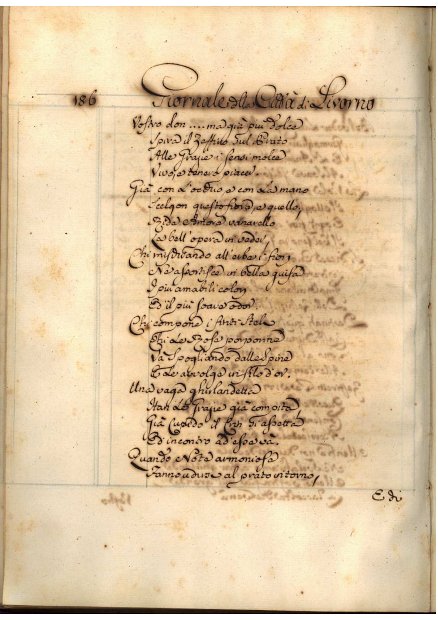 186 Giornale della Città di Livorno
Vostro don .... ma già più dolce
Spira il Zeffiro sul Prato
Alle Grazie i sensi molce
Vivo, e tenero piacer.
Già con l'occhio e con la mano
Scelgon questo fiore, e quello,
Amore vanarello
La bell'opera in veder.
Chi mischiando all'erbe i fiori
Ne assortisce in bella guisa
I più amabili colori
Ed il più soave odor.
Chi compone i steli
Chi le Rose porporine
Và spogliando dalle spine
E le avvolge in fil d'or.
Una vaga ghirlandetta
Han le Grazie già compita,
Già Cupido il Crin s'aspetta
Ed incontro ad esse và.
Quando Note armoniose
Fanno udire al prato intorno,
E di